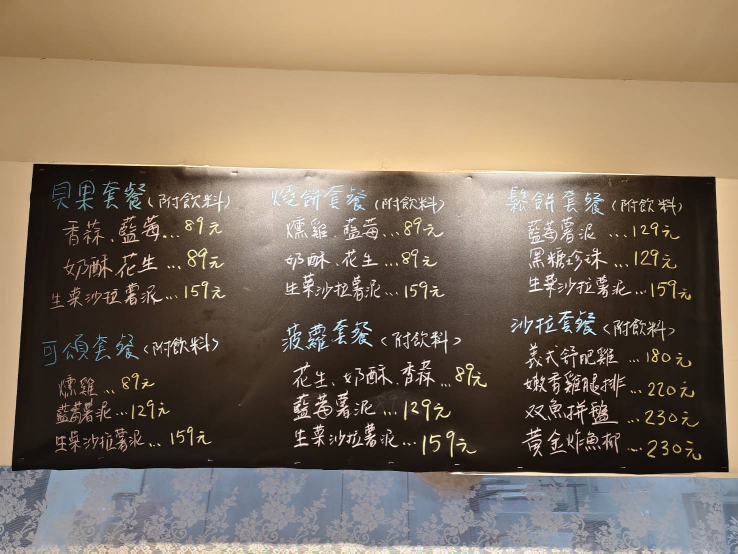 貝果套餐(附飲料)
香蒜、藍莓...89元
奶酥、花生...89元
生菜沙拉薯泥...159元
燒餅套餐(附飲料)
燻雞、藍莓...89元
奶酥、花生...89元
生菜沙拉薯泥...159元
鬆餅套餐(附飲料)
藍莓薯泥...129元
黑糖珍珠...129元
生菜沙拉薯泥...159元
可頌套餐(附飲料)
燻雞...89元
藍莓薯泥...129元
生菜沙拉薯泥...159元
菠蘿套餐(附飲料)
花生、奶酥、香蒜...89元
藍莓薯泥...129元
生菜沙拉薯泥...159元
沙拉套餐(附飲料)
義式舒肥雞...180元
嫩香雞腿排...220元
双魚拼盤...230元
黃金炸魚柳...230元